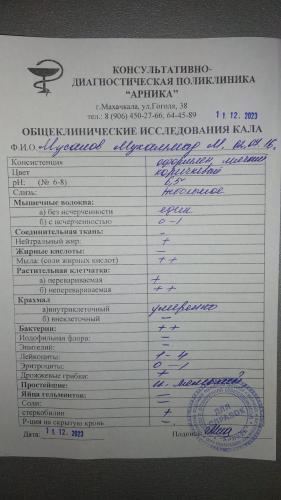 КОНСУЛЬТАТИВНО-
ДИАГНОСТИЧЕСКАЯ ПОЛИКЛИНИКА
"АРНИКА"
г.Махачкала, ул.Гоголя, 38
тел.: 8 (906) 450-27-66; 64-45-89
11 12. 2023
ОБЩЕКЛИНИЧЕСКИЕ ИССЛЕДОВАНИЯ КАЛА
Ф.И.О. Мусаев Мухаммад М.
Консистенция оформлен, мягкий
Цвет коричневый
pH: (№ 6-8) 6,5
Слизь: небольшое
Мышечные волокна:
а) без исчерченности един
б) с исчерченностью 0-1
Соединительная ткань: –
Нейтральный жир: +
Жирные кислоты: –
Мыла: (соли жирных кислот) ++
Растительная клетчатка:
а) перевариваемая +
б) непереваримая ++
Крахмал
а)внутриклеточный умеренно
б) внеклеточный –
Бактерии: ++
Иодофильная флора: –
Эпителий: –
Лейкоциты: 1-4
Эритроциты: 0-1
Дрожжевые грибки: +
Простейшие:
Яйца гельминтов: –
Соли: –
стеркобилин +
Р-ция на скрытую кровь –
Дата: 11. 12. 2023 Подпись:
ДЛЯ
СПРАВОК